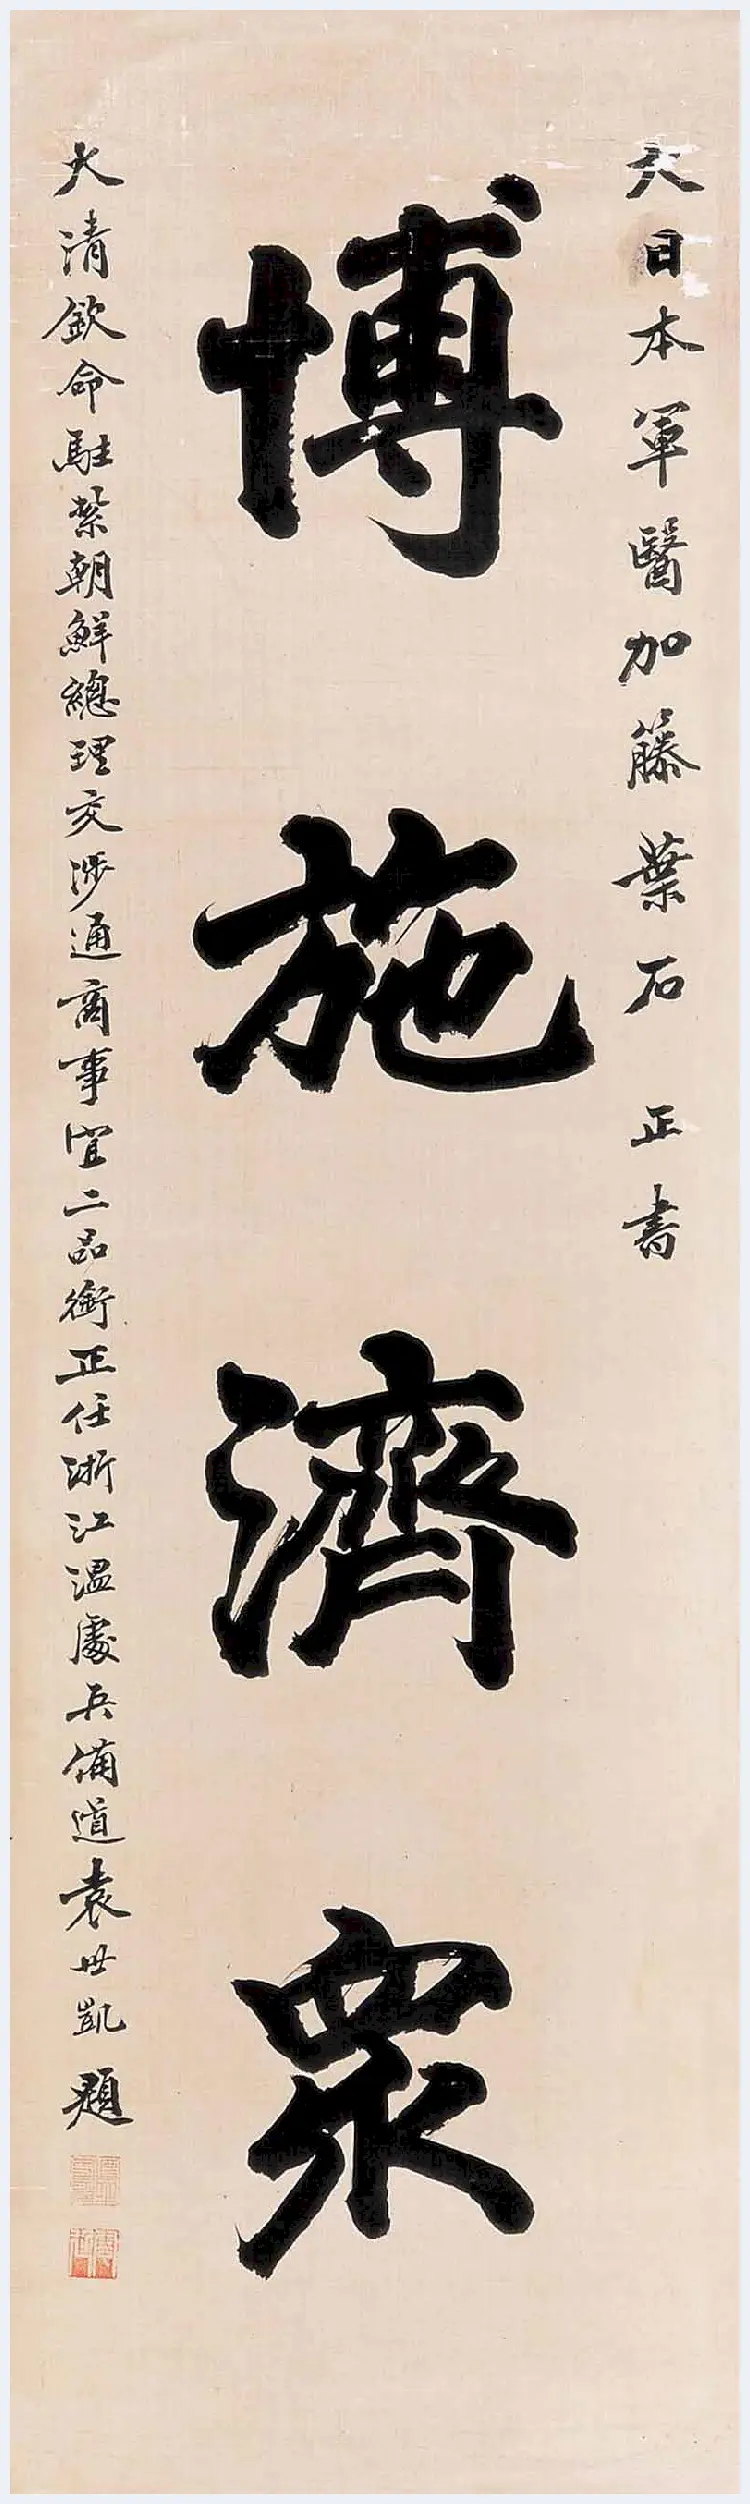 大日本軍醫加籐葉石 正書
博施濟眾
大清欽命駐紮朝鮮總理交涉通商事宜二品銜正任浙江溫處兵備道袁世凱題